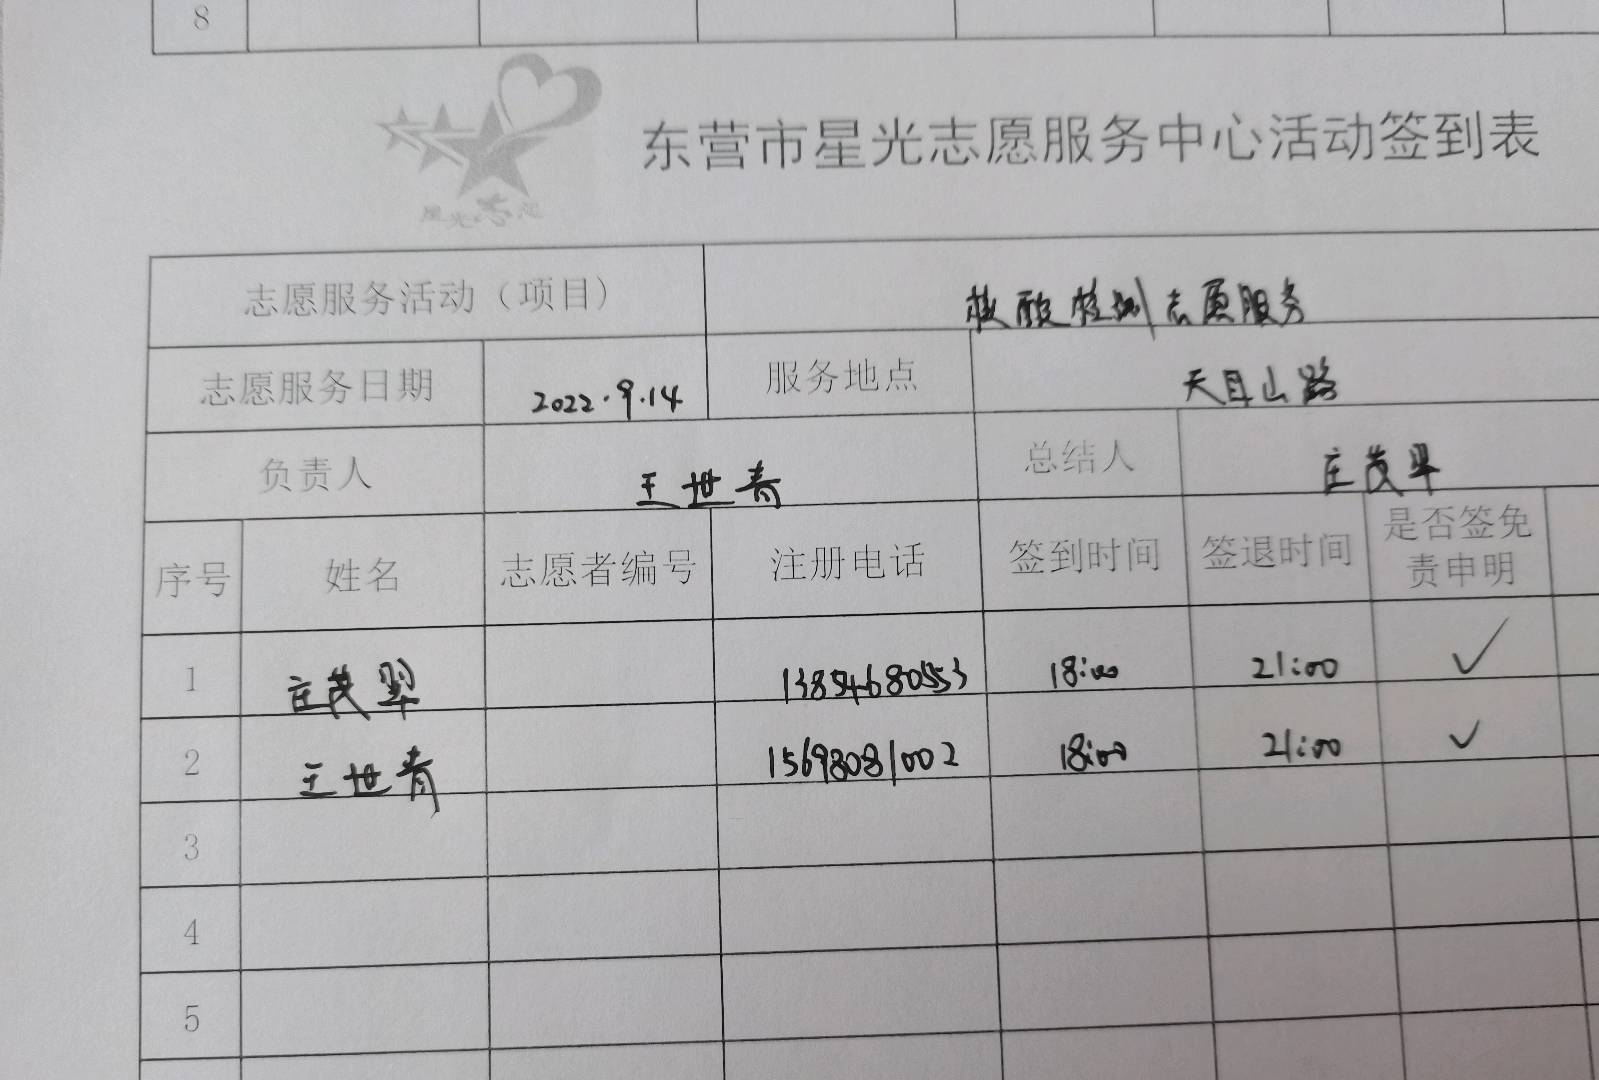 8
星光志愿
东营市星光志愿服务中心活动签到表
志愿服务活动（项目） 核酸检测志愿服务
志愿服务日期 2022.9.14 服务地点 天目山路
负责人 王世青 总结人 庄茂翠
序号 姓名 志愿者编号 注册电话 签到时间 签退时间 是否签免
责申明
1 庄茂翠 13854680553 18:00 21:00 ✓
2 王世青 15698081002 18:00 21:00 ✓
3
4
5